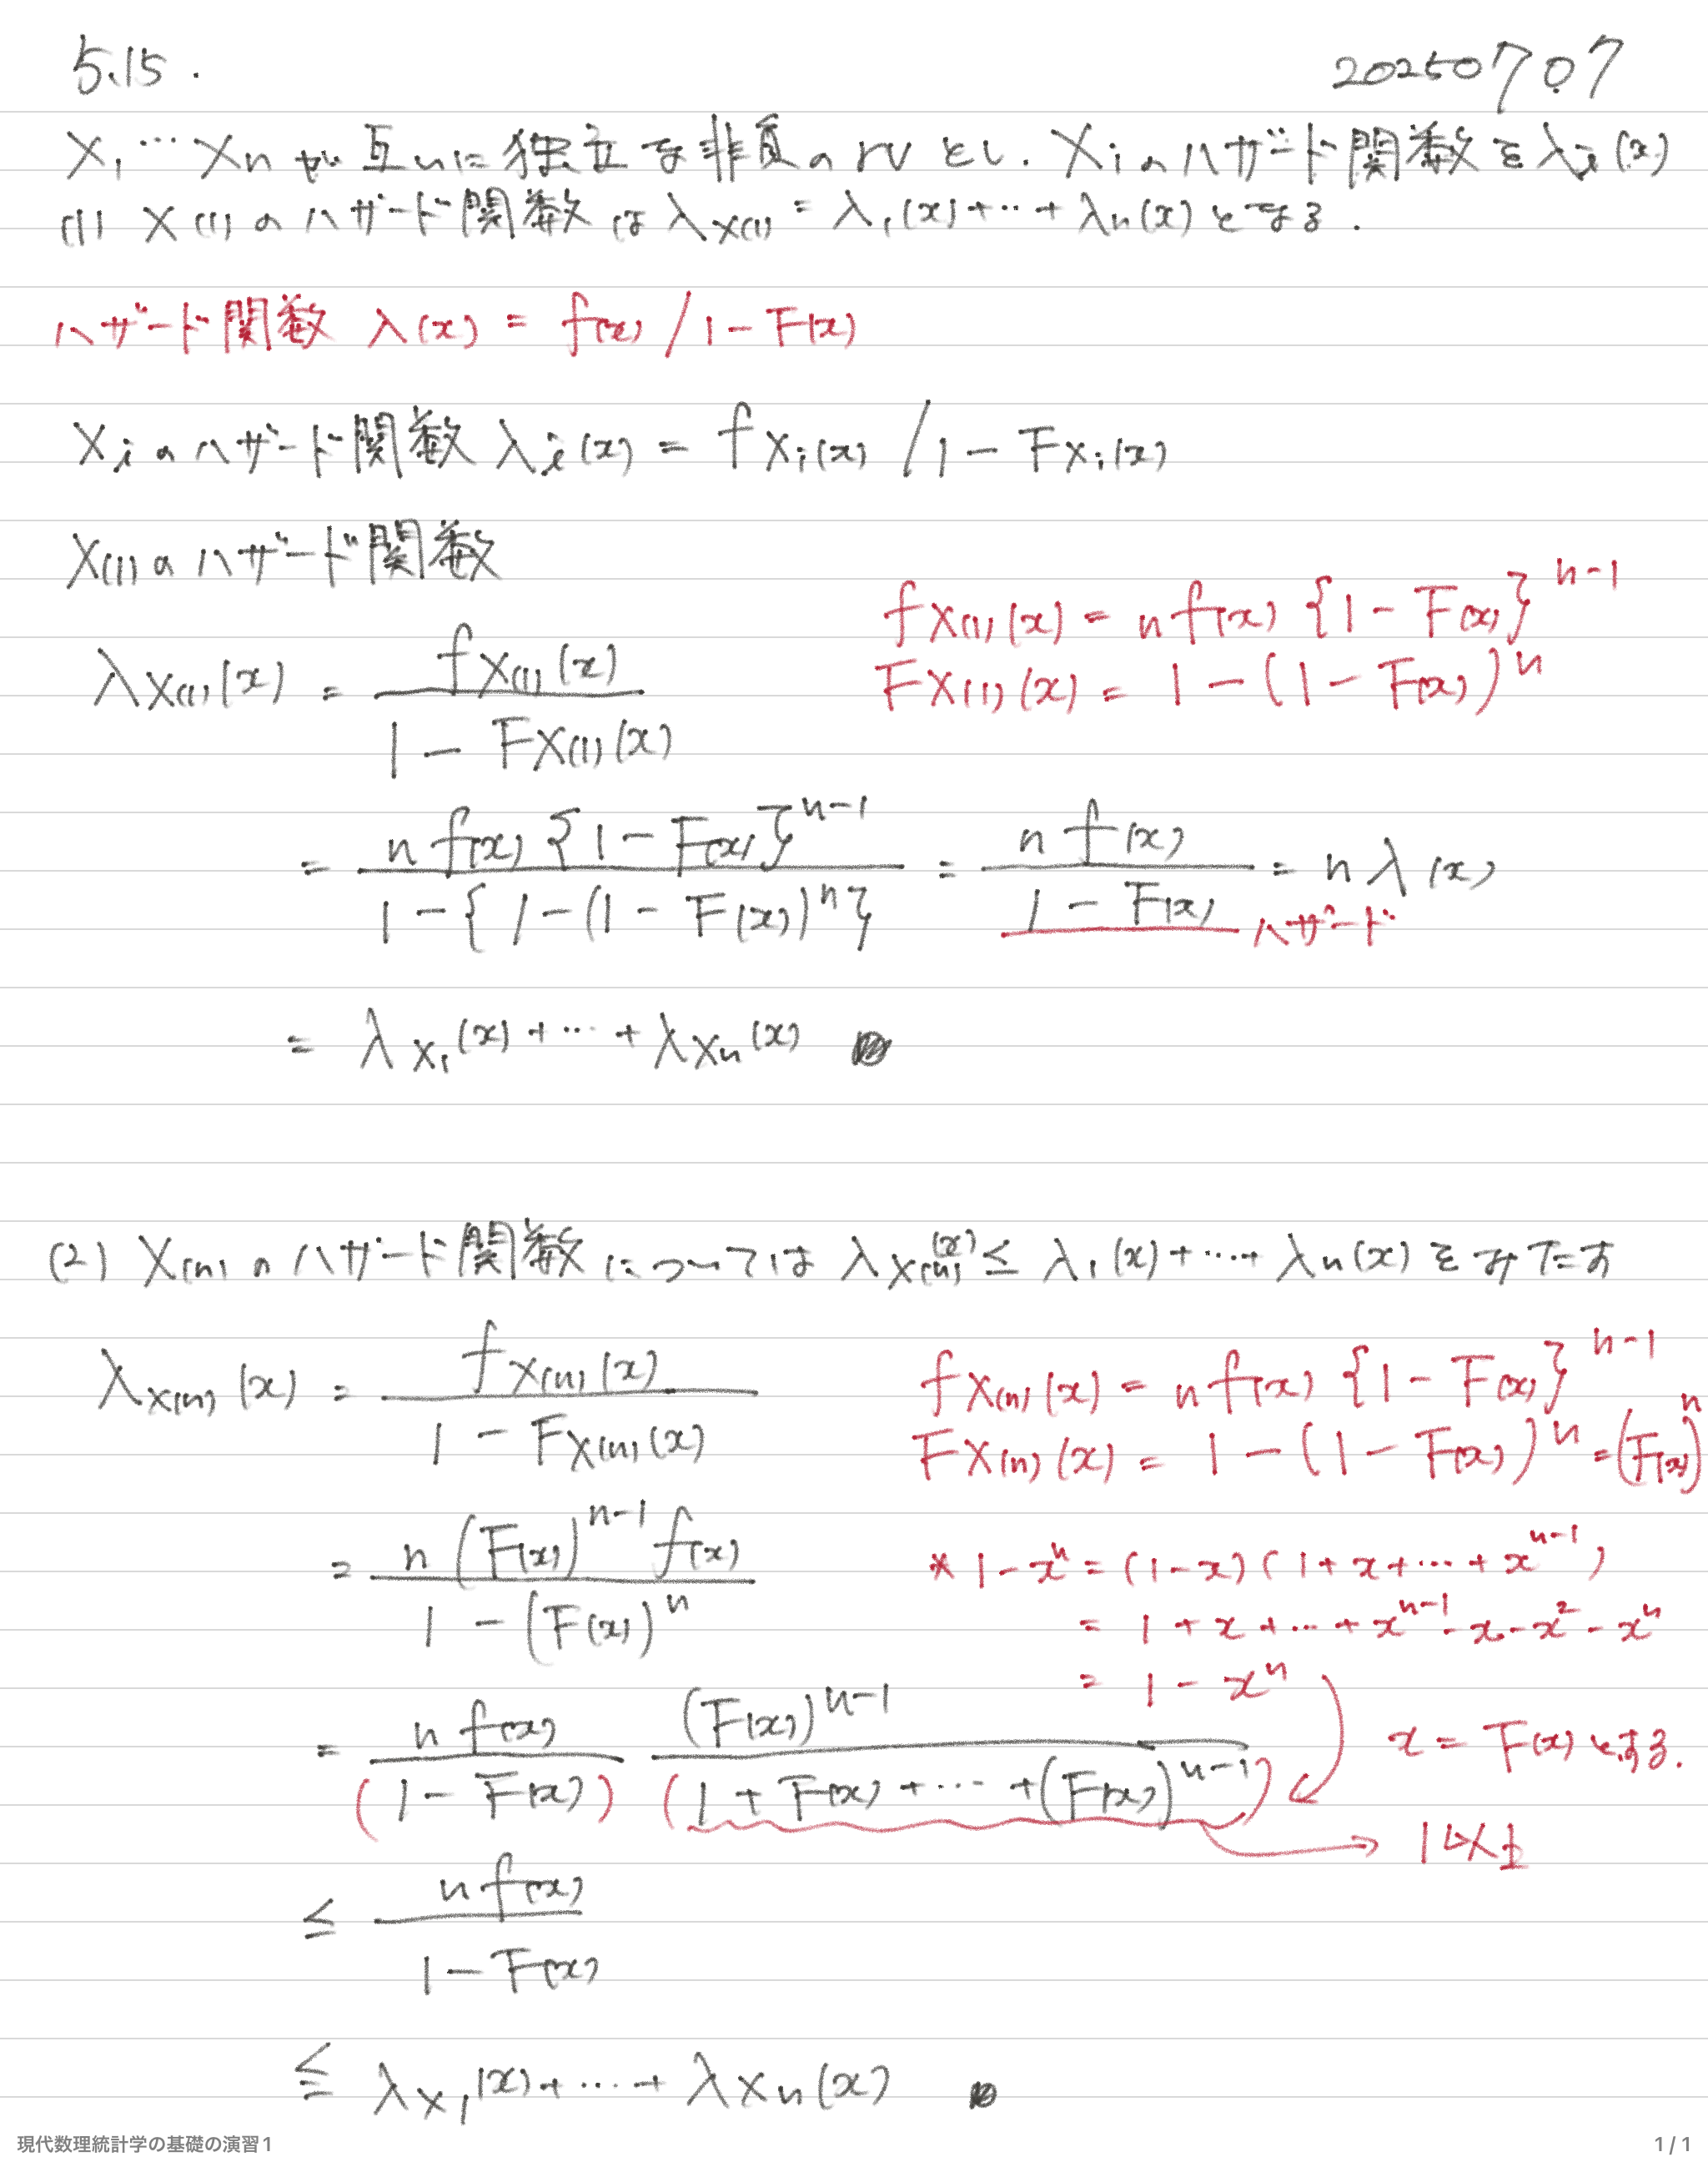 5.15. 20250707
X₁…Xₙが互いに独立な非負のrvとし.Xᵢのハザード関数をλᵢ(x)
(1) X(1)のハザード関数はλ_X(1) = λ₁(x)+…+λₙ(x)とする.
ハザード関数 λ(x) = f(x) / 1-F(x)
Xᵢのハザード関数 λᵢ(x) = f_Xᵢ(x) / 1-F_Xᵢ(x)
X(1)のハザード関数
f_X(1)(x) = n f(x) {1-F(x)}^{n-1}
λ_X(1)(x) = \frac{f_X(1)(x)}{1-F_X(1)(x)}
F_X(1)(x) = 1-(1-F(x))^n
= \frac{n f(x) {1-F(x)}^{n-1}}{1-{1-(1-F(x))^n}} = \frac{n f(x)}{1-F(x)} = n λ(x)
ハザード
= λ_X₁(x)+…+λ_Xₙ(x)
(2) X(n)のハザード関数については λ_X(n)(x) ≤ λ₁(x)+…+λₙ(x)をみたす
λ_X(n)(x) = \frac{f_X(n)(x)}{1-F_X(n)(x)}
f_X(n)(x) = n f(x) {1-F(x)}^{n-1}
F_X(n)(x) = 1-(1-F(x))^n = (F(x))^n
= \frac{n (F(x))^{n-1} f(x)}{1-(F(x))^n}
* 1-x^n = (1-x)(1+x+…+x^{n-1})
= 1+x+…+x^{n-1}-x-x²-x^n
= 1-x^n
= \frac{n f(x)}{(1-F(x))} \frac{(F(x))^{n-1}}{(1+F(x)+…+(F(x))^{n-1})}
x = F(x)とする.
1以上
≤ \frac{n f(x)}{1-F(x)}
≦ λ_X₁(x)+…+λ_Xₙ(x)
現代数理統計学の基礎の演習1 1 / 1